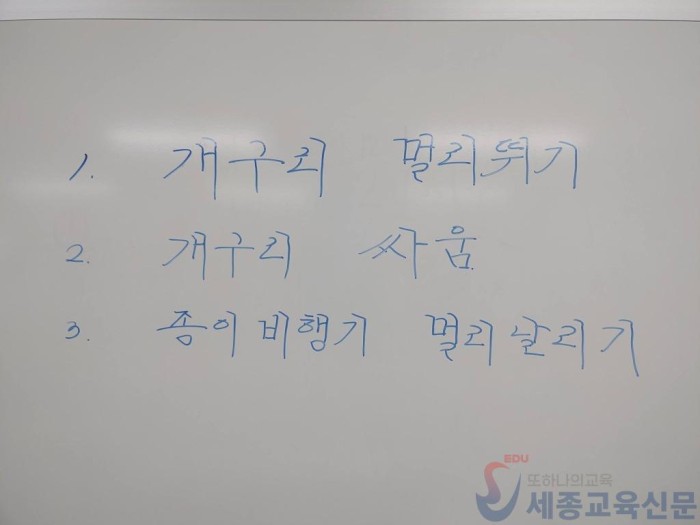 1. 개구리 멀리뛰기
2. 개구리 싸움
3. 종이비행기 멀리날리기
EDU
또하나의교육
세종교육신문